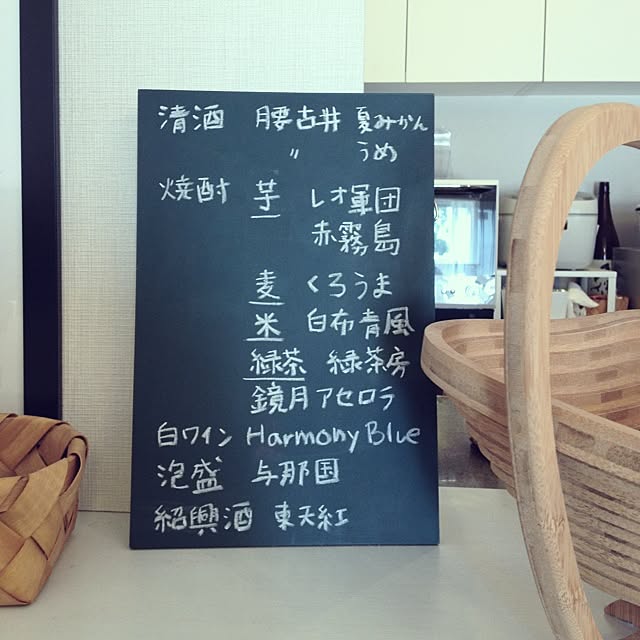 清酒 腰古井 夏みかん
〃 うめ
焼酎 芋 レオ軍団
赤霧島
麦 くろうま
米 白布青風
緑茶 緑茶房
鏡月アセロラ
白ワイン Harmony Blue
泡盛 与那国
紹興酒 東天紅